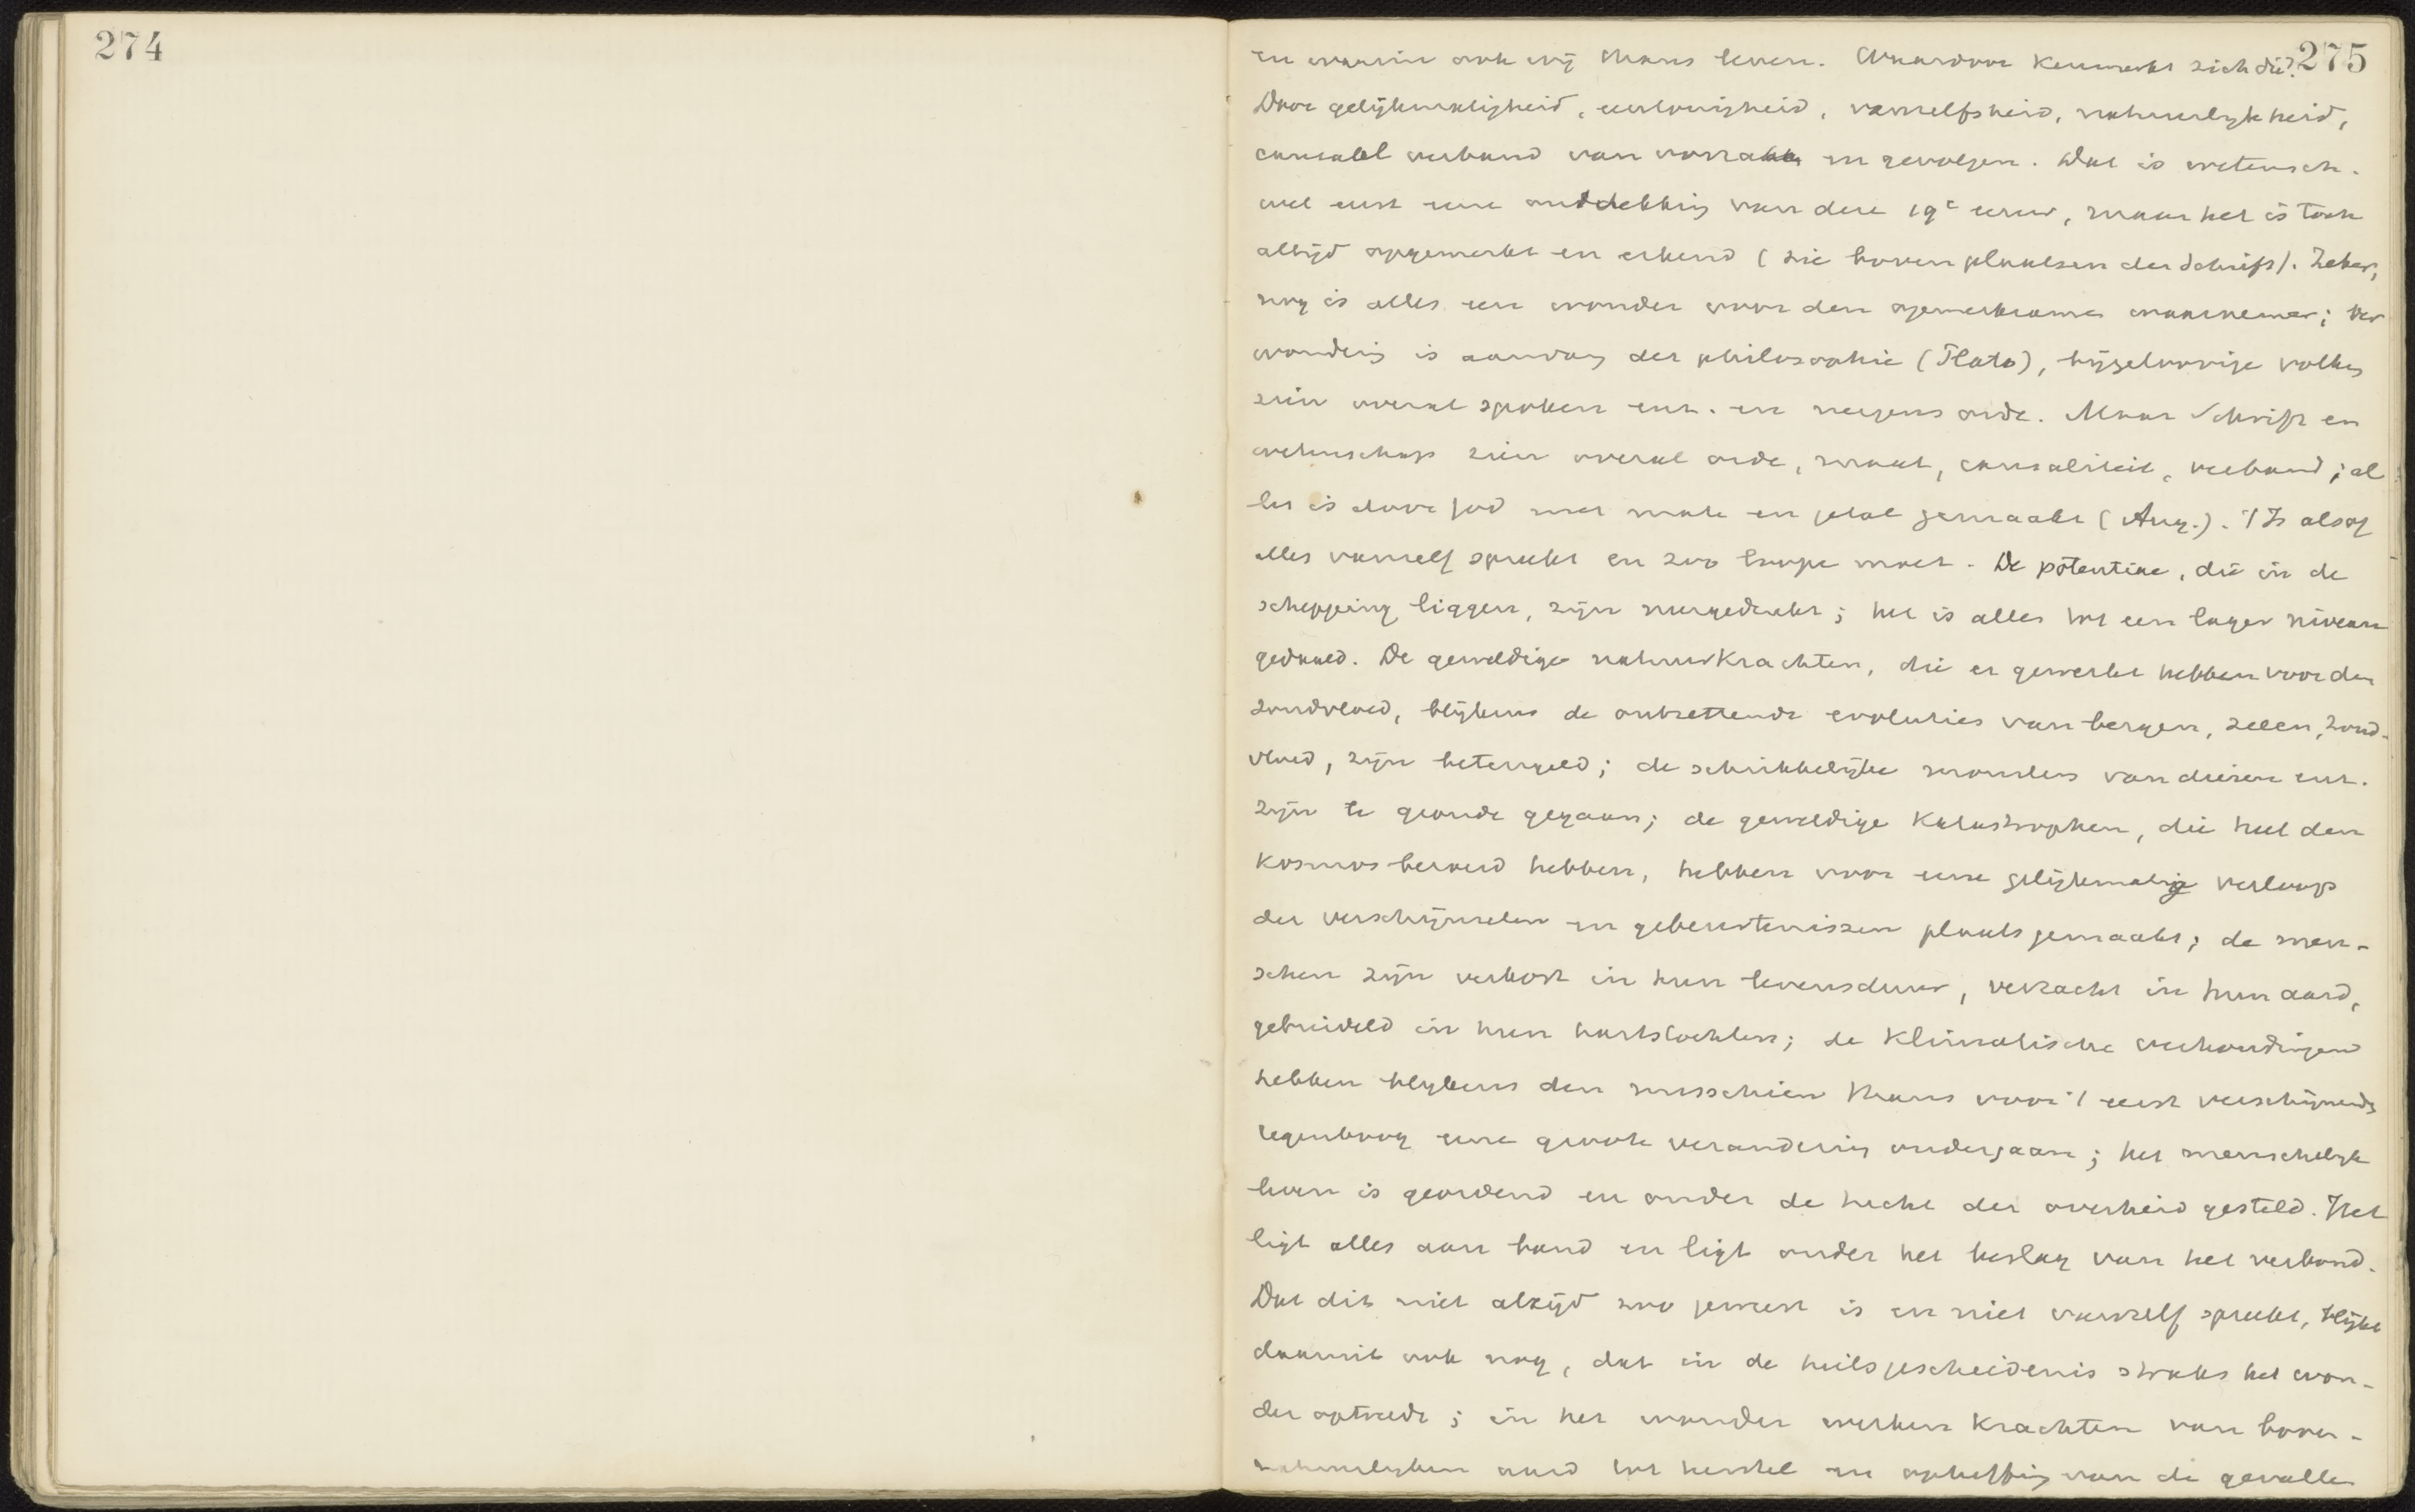 274
275
en waarin ook wij thans leven. Waardoor kenmerkt zich die?
Door gelijkmatigheid, eentonigheid, vanzelfsheid, natuurlijkheid,
causaal verband van oorzaken en gevolgen. Dat is wetensch.
wel eerst eene ontdekking van deze 19e eeuw, maar het is toch
altijd opgemerkt en erkend (zie boven plaatsen der Schrift). Zeker,
nog is alles een wonder voor den opmerkzamen waarnemer; ver
wondering is aanvang der philosophie (Plato), bijgeloovige volken
zien overal spoken enz. en nergens orde. Maar Schrift en
wetenschap zien overal orde, maat, causaliteit, verband; al
les is door God met mate en getal gemaakt (Aug.). 't Is alsof
alles vanzelf spreekt en zoo loopen moet. De potentiae, die in de
schepping liggen, zijn neergedrukt; het is alles tot een lager niveau
gedaald. De geweldige natuurkrachten, die er gewerkt hebben voor den
zondvloed, blijkens de ontzettende evoluties van bergen, zeeen, zond-
vloed, zijn beteugeld; de schrikkelijke monsters van dieren enz.
zijn te gronde gegaan; de geweldige Katastrophen, die heel den
Kosmos beroerd hebben, hebben voor eene gelijkmatige verloop
der verschijnselen en gebeurtenissen plaats gemaakt; de men-
schen zijn verkort in hun levensduur, verzacht in hun aard,
gebreideld in hun hartstochten; de klimatische verhoudingen
hebben blijkens den misschien thans voor 't eerst verschijnende
regenboog eene groote verandering ondergaan; het menschelijk
leven is geordend en onder de tucht der overheid gesteld. Het
ligt alles aan band en ligt onder het beslag van het verbond.
Dat dit niet altijd zoo geweest is en niet vanzelf spreekt, blijkt
daaruit ook nog, dat in de heilsgeschiedenis straks het won-
der optreedt; in het wonder werken Krachten van boven-
natuurlijken aard tot herstel en opheffing van de gevallen